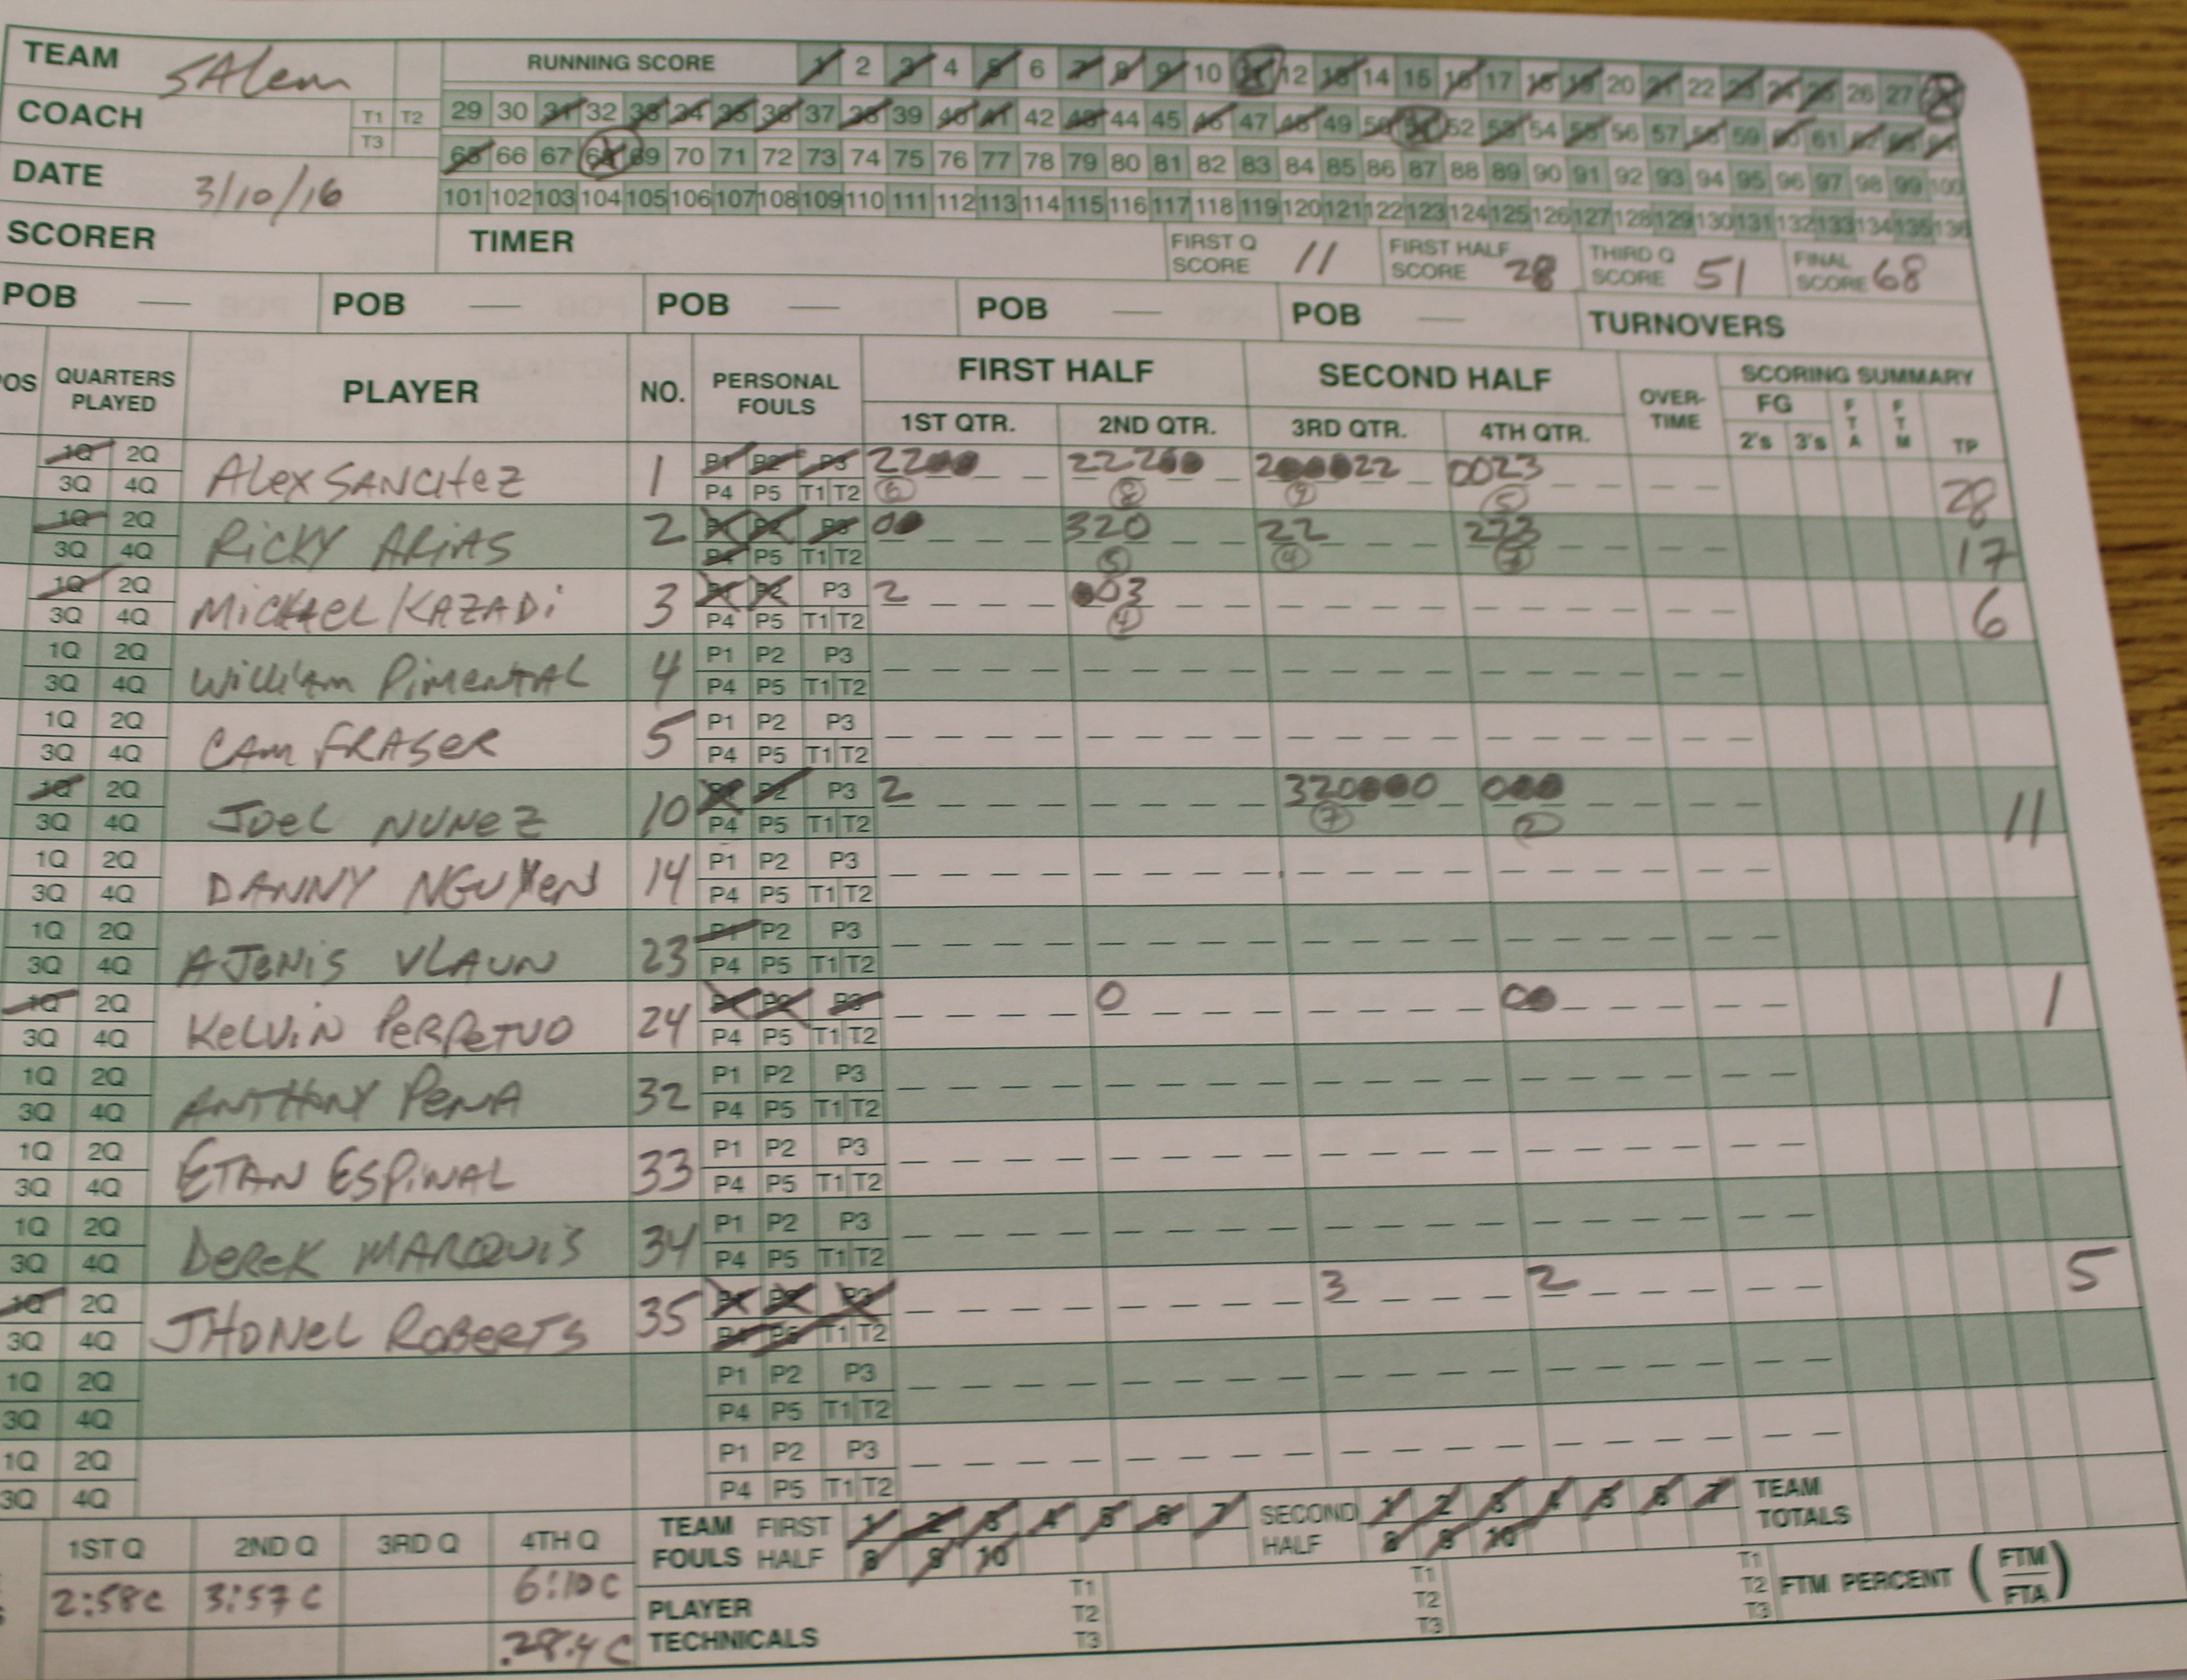 TEAM SALem RUNNING SCORE 1 2 3 4 5 6 7 8 9 10 11 12 13 14 15 16 17 18 19 20 21 22 23 24 25 26 27 28
COACH T1 T2 T3 29 30 31 32 33 34 35 36 37 38 39 40 41 42 43 44 45 46 47 48 49 50 51 52 53 54 55 56 57 58 59 60 61 62 63 64
65 66 67 68 69 70 71 72 73 74 75 76 77 78 79 80 81 82 83 84 85 86 87 88 89 90 91 92 93 94 95 96 97 98 99 100
DATE 3/10/16 101 102 103 104 105 106 107 108 109 110 111 112 113 114 115 116 117 118 119 120 121 122 123 124 125 126 127 128 129 130 131 132 133 134 135 136
SCORER TIMER FIRST Q SCORE 11 FIRST HALF SCORE 28 THIRD Q SCORE 51 FINAL SCORE 68
POB — POB — POB — POB — POB — TURNOVERS
POS QUARTERS PLAYED PLAYER NO. PERSONAL FOULS FIRST HALF SECOND HALF OVER-TIME SCORING SUMMARY
1ST QTR. 2ND QTR. 3RD QTR. 4TH QTR. FG 2's 3's FTA FTM TP
1Q 2Q ALEX SANCHEZ 1 P1 P2 P3 2200 222200 2000022 0023
3Q 4Q P4 P5 T1 T2 6 8 9 5 28
1Q 2Q RICKY ARIAS 2 P1 P2 P3 00 320 22 223
3Q 4Q P4 P5 T1 T2 5 4 7 17
1Q 2Q MICHAEL KAZADI 3 P1 P2 P3 2 003
3Q 4Q P4 P5 T1 T2 4 6
1Q 2Q WILLIAM PIMENTAL 4 P1 P2 P3
3Q 4Q P4 P5 T1 T2
1Q 2Q CAM FRASER 5 P1 P2 P3
3Q 4Q P4 P5 T1 T2
1Q 2Q JOEL NUNEZ 10 P1 P2 P3 2 320000 000
3Q 4Q P4 P5 T1 T2 7 2 11
1Q 2Q DANNY NGUYEN 14 P1 P2 P3
3Q 4Q P4 P5 T1 T2
1Q 2Q AJENIS VLAUN 23 P1 P2 P3
3Q 4Q P4 P5 T1 T2
1Q 2Q KELVIN PERPETUO 24 P1 P2 P3 0 00 1
3Q 4Q P4 P5 T1 T2
1Q 2Q ANTHONY PENA 32 P1 P2 P3
3Q 4Q P4 P5 T1 T2
1Q 2Q ETAN ESPINAL 33 P1 P2 P3
3Q 4Q P4 P5 T1 T2
1Q 2Q DEREK MARQUIS 34 P1 P2 P3
3Q 4Q P4 P5 T1 T2
1Q 2Q JHONEL ROBERTS 35 P1 P2 P3 3 2 5
3Q 4Q P4 P5 T1 T2
1Q 2Q P1 P2 P3
3Q 4Q P4 P5 T1 T2
1Q 2Q P1 P2 P3
3Q 4Q P4 P5 T1 T2
1ST Q 2ND Q 3RD Q 4TH Q TEAM FOULS FIRST HALF 1 2 3 4 5 6 7 8 9 10 SECOND HALF 1 2 3 4 5 6 7 8 9 10 TEAM TOTALS
2:58 C 3:57 C 6:10 C PLAYER TECHNICALS T1 T2 T3 T1 T2 T3 T1 T2 T3 FTM PERCENT (FTM/FTA)
.28.4 C